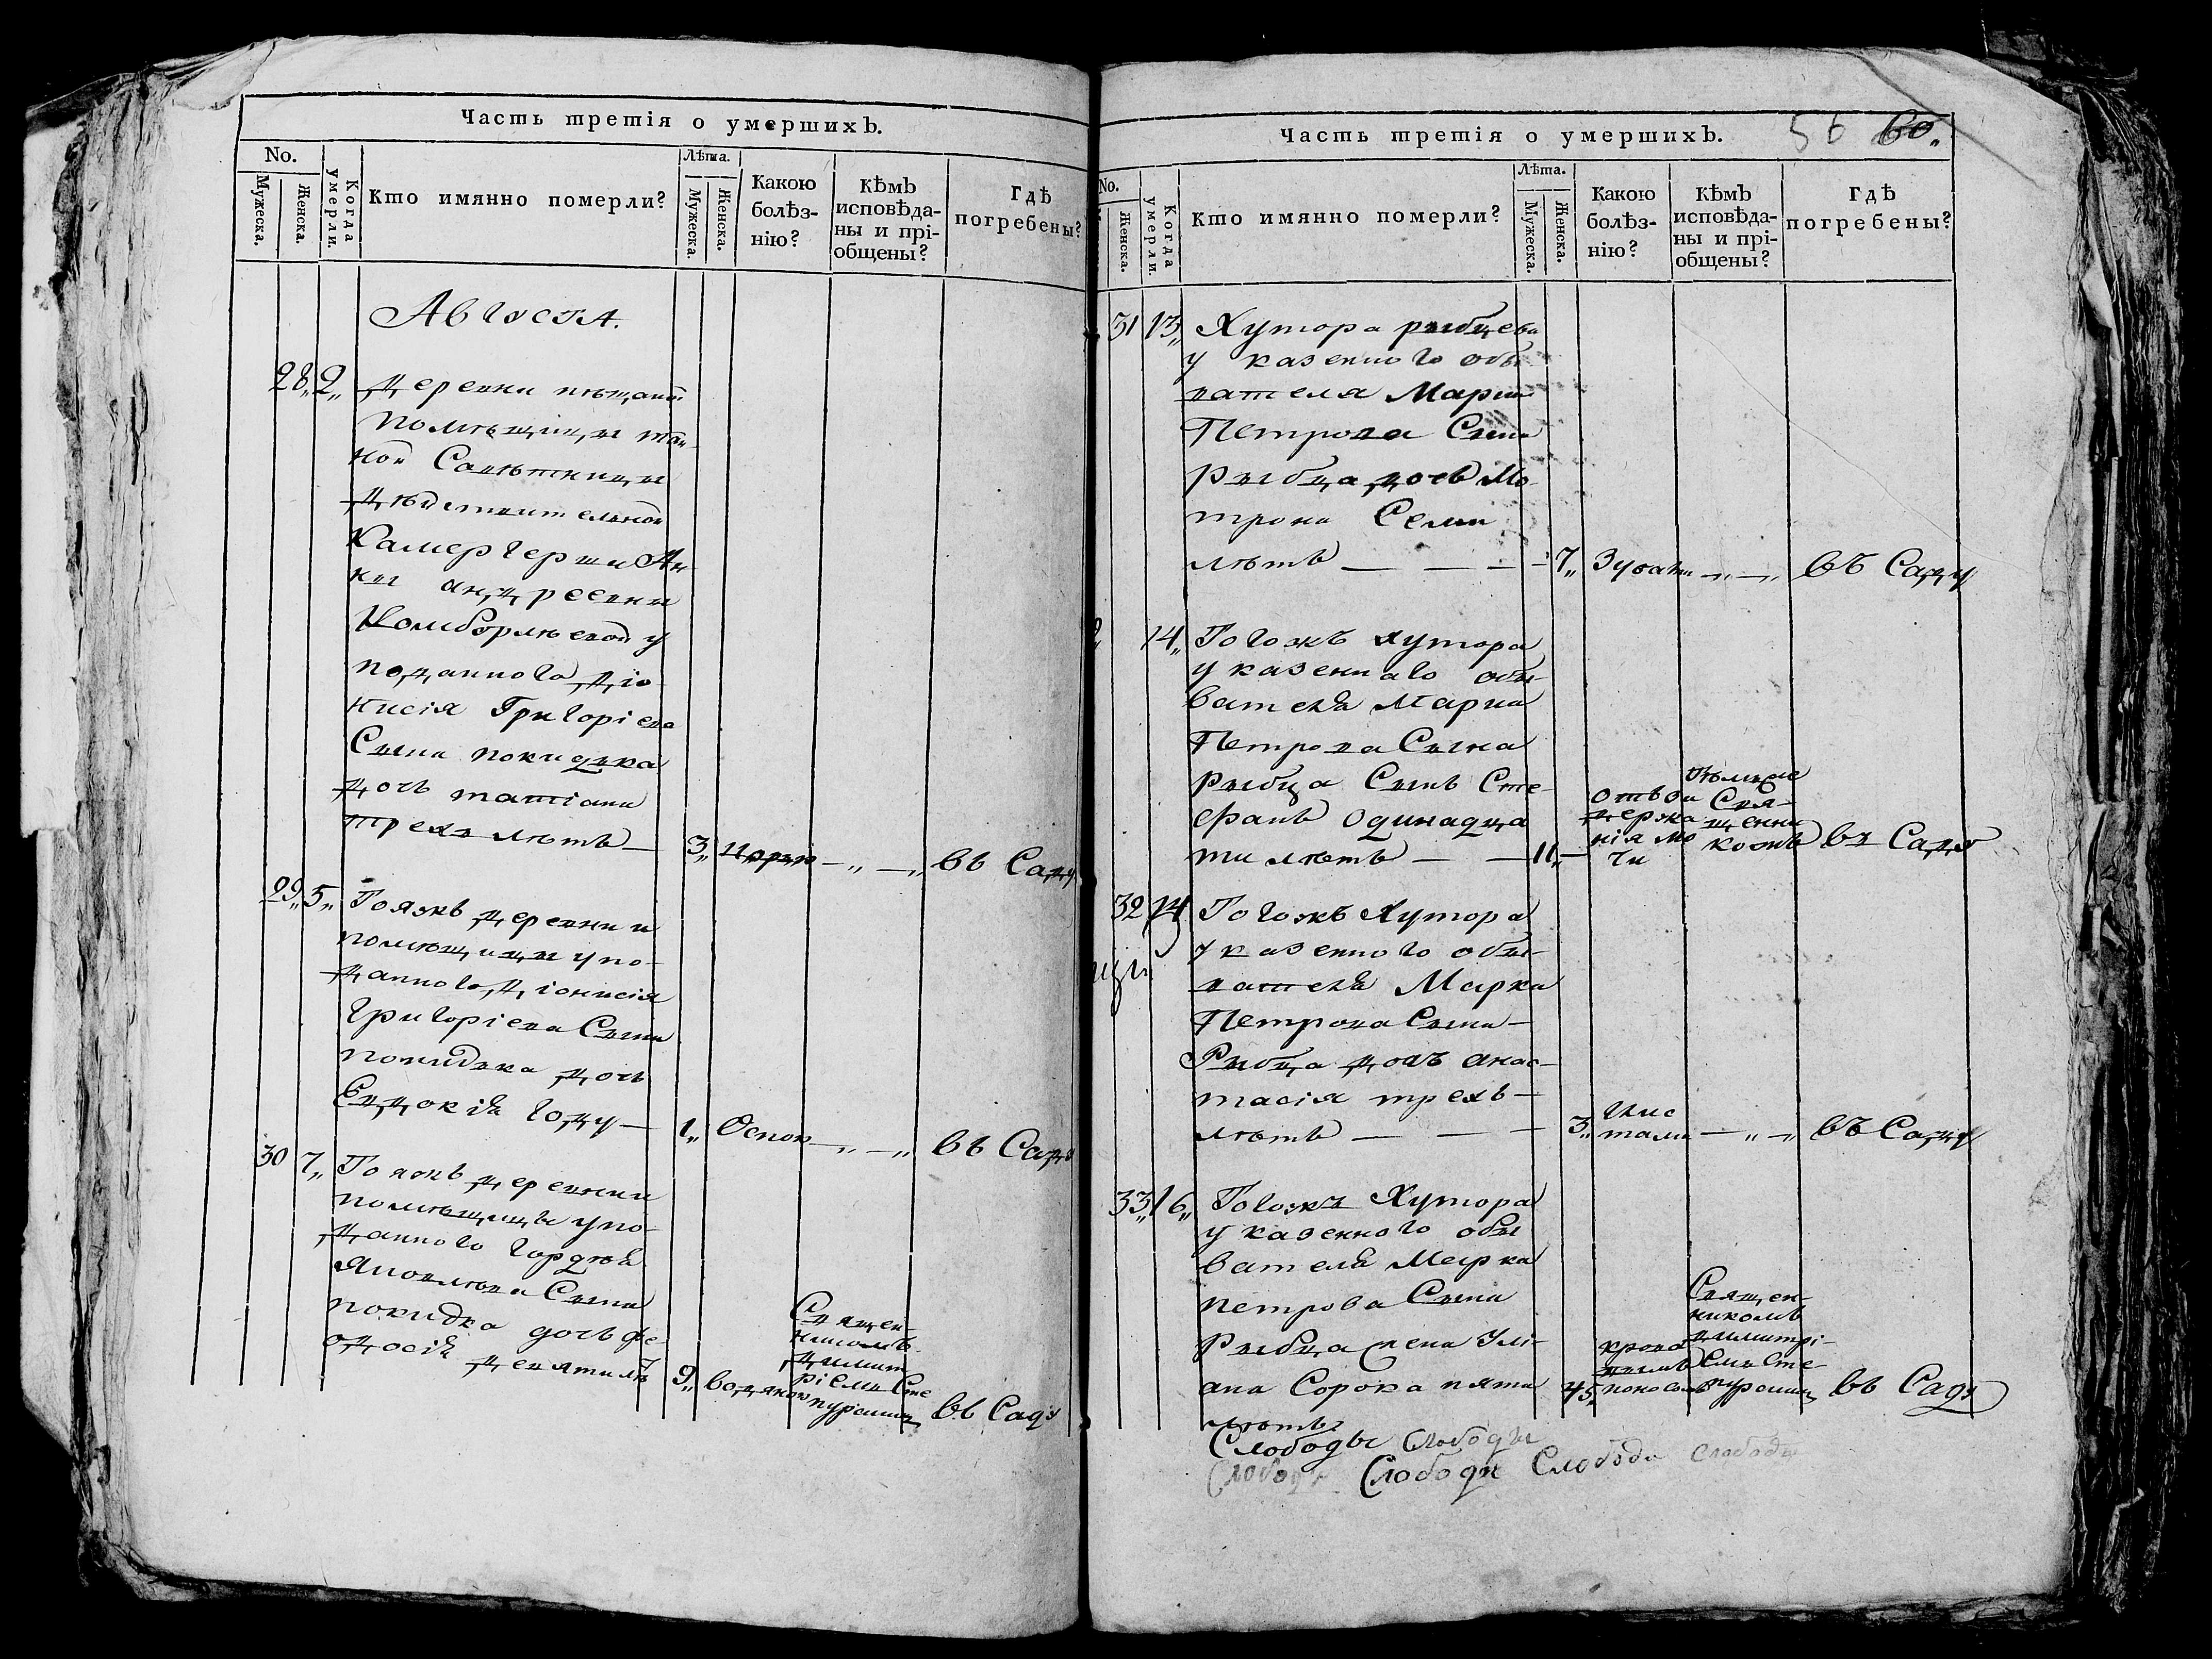 Часть третія о умершихъ.
No.
Мужеска.
Женска.
Когда умерли.
Кто имянно померли?
Лѣта.
Мужеска.
Женска.
Какою болѣз-
нію?
кѣмъ
исповѣда-
ны и прі-
общены?
Гдѣ
погребены?
Августа.
28„ 2„ деревни
помѣщицы тай-
ной Совѣтницы
дѣйствительной
Камергерши Ан-
ны андреевны
у
поданного діо-
нисія Григоріева
Сына покидька
дочь татіана
трехъ лѣтъ — 3„ — „ — „ въ Саду
29„ 5„ Тояжъ деревни и
помѣщицы у по-
данного діонисія
Григоріева Сына
покидька дочь
Евдокія году — 1„ Оспою — „ — „ въ Саду
30 7„ Тояжъ деревни
помѣщицы у по-
данного гордѣя
Яковлева Сына
покидка дочь фе-
одосія девяти лѣ 9„ водяною
Священ-
никомъ
димит
ріемъ Сте
пурскимъ
въ Саду
Часть третія о умершихъ.
56 60„
No.
Женска.
Когда умерли.
Кто имянно померли?
Лѣта.
Мужеска.
Женска.
Какою болѣз-
нію?
кѣмъ
исповѣда-
ны и прі-
общены?
Гдѣ
погребены?
31 13„ Хутора рыбцева
у казенного обы
вателя Марка
Петрова Сына
рыбца дочь Мо
трона Семи
лѣтъ — — — 7„ Зубами — „ — „ въ Саду
14„ Тогожъ хутора
у казенного обы-
вателя Марка
Петрова Сына
рыбца Сынъ Сте-
фанъ одинадца
ти лѣтъ — — 11„ —
отъ за
держа
нія мо
чи
тѣмже
Свя-
щенни
комъ
въ Саду
32 14 Тогожъ Хутора
у казенного обы-
вателя Марка
Петрова Сына —
Рыбца дочь анас-
тасія трехъ —
лѣтъ — — — 3„
глис
тами — „ — „ въ Саду
33„ 16„ Тогожъ Хутора
у казенного обы
вателя Марка
петрова Сына
Рыбца жена Улі-
ана Сорока пяти
лѣтъ
45„
крова
вымъ
поносомъ
Священ-
никомъ
димитрі-
емъ Сте-
пурскимъ
въ Саду
Слободы Слободы
Слободы Слободы Слободы Слободы